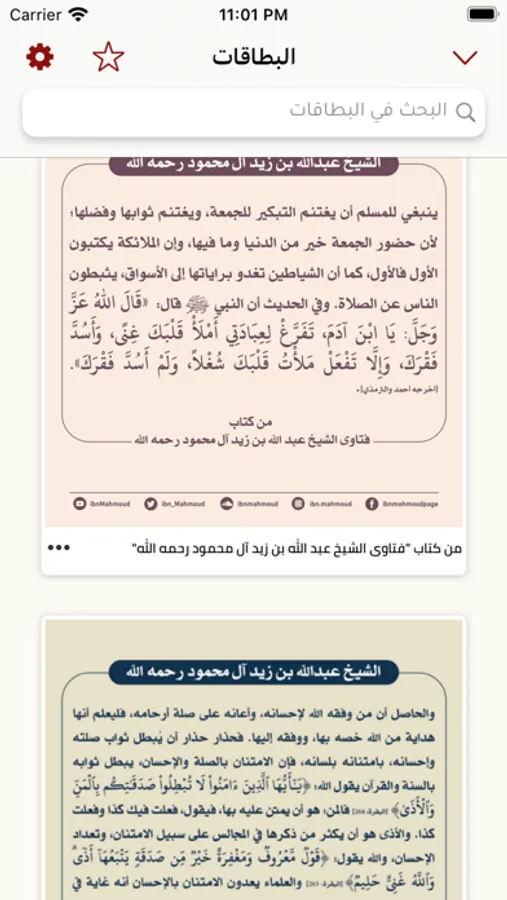 Carrier 11:01 PM
البطاقات
البحث في البطاقات
الشيخ عبدالله بن زيد آل محمود رحمه الله
ينبغي للمسلم أن يغتنم التبكير للجمعة، ويغتنم ثوابها وفضلها؛
لأن حضور الجمعة خير من الدنيا وما فيها، وإن الملائكة يكتبون
الأول فالأول، كما أن الشياطين تغدو براياتها إلى الأسواق، يثبطون
الناس عن الصلاة. وفي الحديث أن النبي ﷺ قال: «قَالَ اللهُ عَزَّ
وَجَلَّ: يَا ابْنَ آدَمَ، تَفَرَّغْ لِعِبَادَتِي أَمْلَأْ قَلْبَكَ غِنًى، وَأَسُدَّ
فَقْرَكَ، وَإِلَّا تَفْعَلْ مَلَأْتُ قَلْبَكَ شُغْلاً، وَلَمْ أَسُدَّ فَقْرَكَ».
[أخرجه أحمد والترمذي].
من كتاب
فتاوى الشيخ عبد الله بن زيد آل محمود رحمه الله
ibnMahmoud ibn_Mahmoud ibnmahmoud ibn.mahmoud ibnmahmoudpage
من كتاب "فتاوى الشيخ عبد الله بن زيد آل محمود رحمه الله"
الشيخ عبدالله بن زيد آل محمود رحمه الله
والحاصل أن من وفقه الله لإحسانه، وأعانه على صلة أرحامه، فليعلم أنها
هداية من الله خصه بها، ووفقه إليها. فحذار حذار أن يُبطل ثواب صلته
وإحسانه، بامتنانه بلسانه، فإن الامتنان بالصلة والإحسان، يبطل ثوابه
بالسنة والقرآن يقول الله: ﴿يَٰٓأَيُّهَا ٱلَّذِينَ ءَامَنُواْ لَا تُبۡطِلُواْ صَدَقَٰتِكُم بِٱلۡمَنِّ
وَٱلۡأَذَىٰ﴾ [البقرة: 264] فالمن: هو أن يمتن عليه بها، فيقول، فعلت فيك كذا وفعلت
كذا. والأذى هو أن يكثر من ذكرها في المجالس على سبيل الامتنان، وتعداد
الإحسان، والله يقول: ﴿قَوۡلٞ مَّعۡرُوفٞ وَمَغۡفِرَةٌ خَيۡرٞ مِّن صَدَقَةٖ يَتۡبَعُهَآ أَذٗىۗ
وَٱللَّهُ غَنِيٌّ حَلِيمٞ﴾ [البقرة: 263] والعلماء يعدون الامتنان بالإحسان أنه غاية في